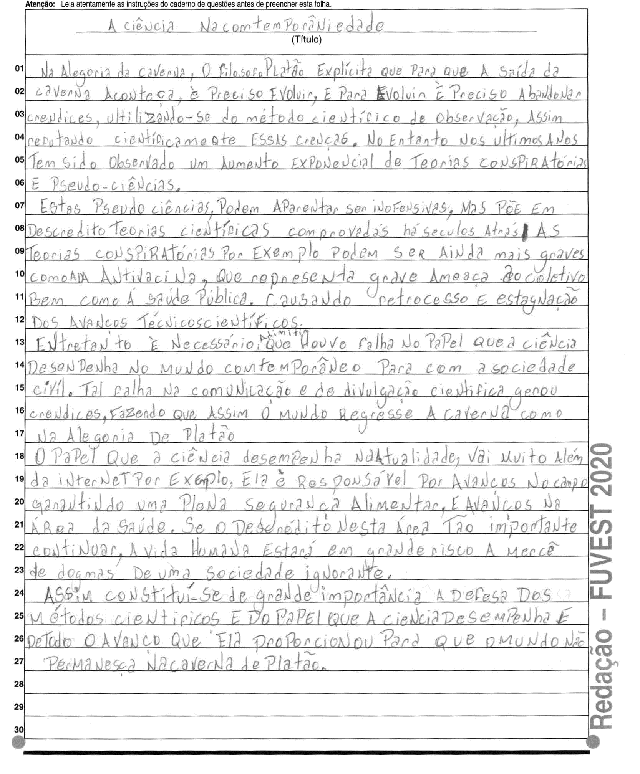 Atenção: Leia atentamente as instruções do caderno de questões antes de preencher esta folha.
A ciência Na comtemporâniedade
(Título)
01 Na Alegoria da caverna, O filosofo Platão Explícita que Para que A Saída da
02 caverna Aconteça, é Preciso Evoluir, E Para Evoluir É Preciso Abandonar
03 crendices, ultilizando-se do método científico de observação, Assim
04 refutando cientificamente Essas crenças. No Entanto nos ultimos Anos
05 Tem sido Observado um Aumento Exponencial de Teorias conspiratórias
06 E Pseudo-ciências.
07 Estas Pseudo ciências, Podem Aparentar ser inofensivas, Mas Põe Em
08 Descredito Teorias científicas comprovadas há seculos Atrás, As
09 Teorias conspiratórias Por Exemplo Podem ser Ainda mais graves
10 como A Antivacina, que representa grave Ameaça Ao coletivo
11 Bem como Á saúde Pública. Causando retrocesso E estagnação
12 Dos Avancos Técnicoscientíficos.
13 Entretanto É Necessário, Admitir Que Houve falha No Papel que a ciência
14 Desenpenha No Mundo comtemporâneo Para com a sociedade
15 civil. Tal falha na comunicação e de divulgação cientifica gerou
16 crendices, Fazendo que Assim O mundo Regresse A caverna como
17 Na Alegoria De Platão
18 O Papel Que a ciência desempenha na Atualidade, Vai Muito Além
19 da internet Por Exemplo, Ela é Responsável Por Avanços No campo
20 garantindo uma Plena Segurança Alimentar, E Avanços Na
21 Área da Saúde. Se o Descrédito Nesta Área Tão importante
22 continuar, A Vida Humana Estará em grande risco A Mercê
23 de dogmas De uma Sociedade ignorante.
24 Assim constitui-se de grande importância A Defesa Dos
25 Métodos cientificos E do Papel que A ciencia Desempenha E
26 De todo O Avanco Que Ela proporcionou Para que o mundo Não
27 Permanesca Na caverna de Platão.
28
29
30
Redação – FUVEST 2020